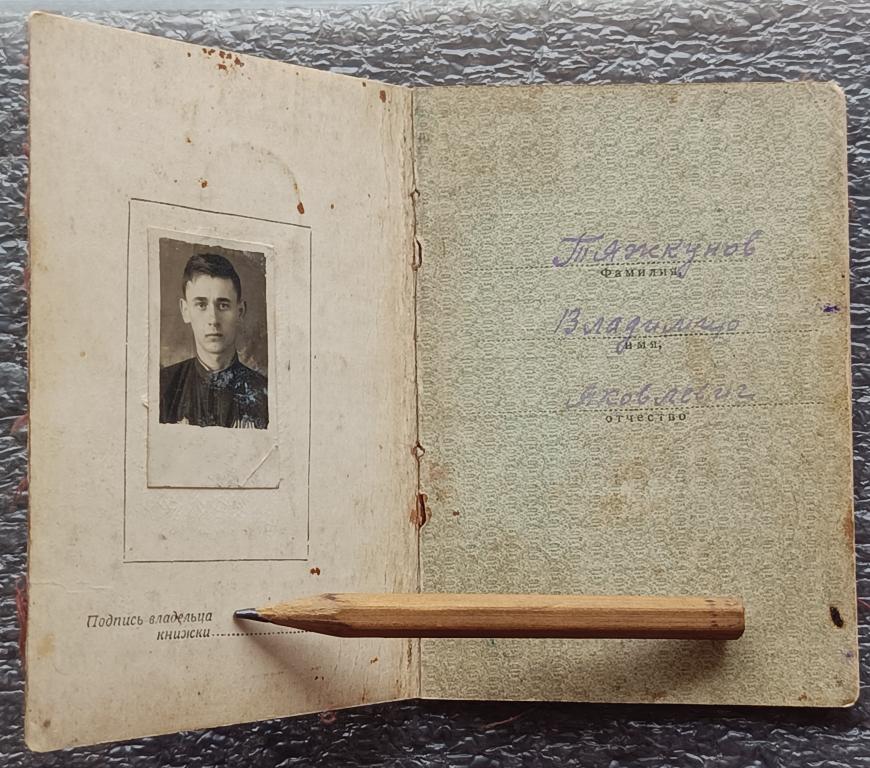 Подпись владельца
книжки
Тяжкунов
Фамилия,
Владимир
имя,
Яковлевич
отчество